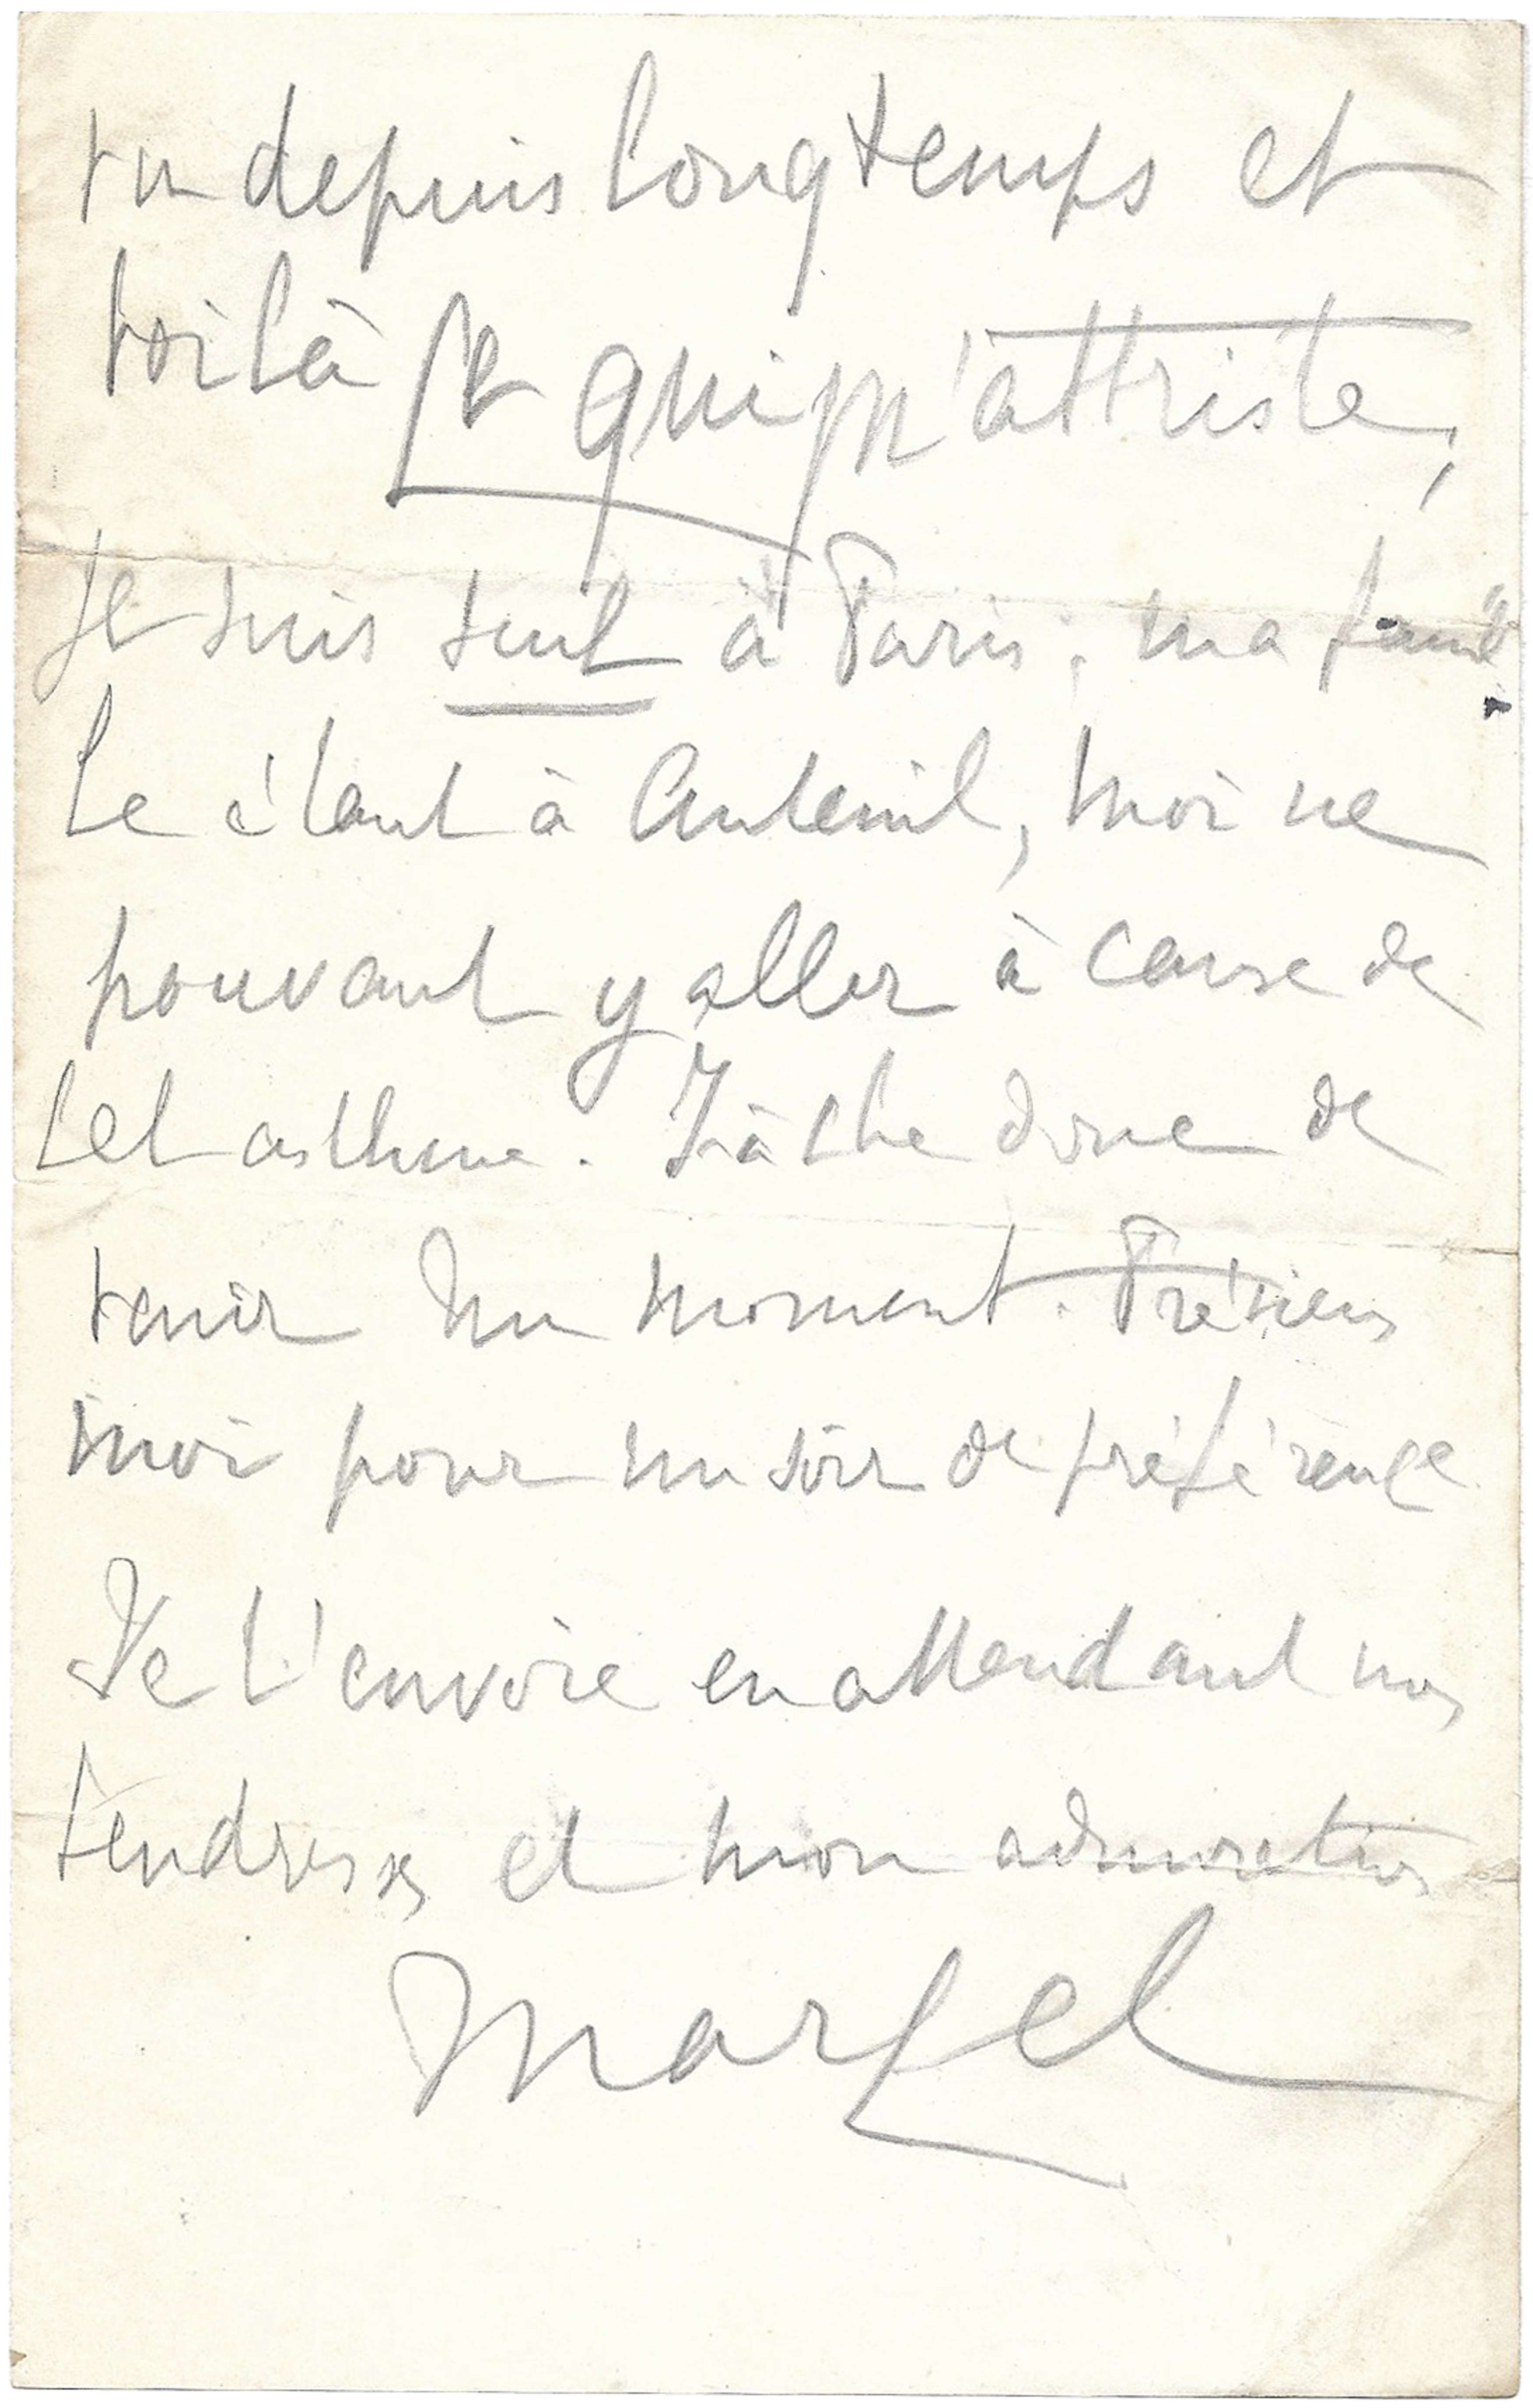 vu depuis longtemps et
voilà ce qui m'attriste,
Je suis seul à Paris ; ma famil
le étant à Auteuil, moi ne
pouvant y aller à cause de
cet asthme. Tâche donc de
venir un moment. Préviens
moi pour un soir de préférence
Je t'envoie en attendant mes
tendresses et mon admiration
Marcel